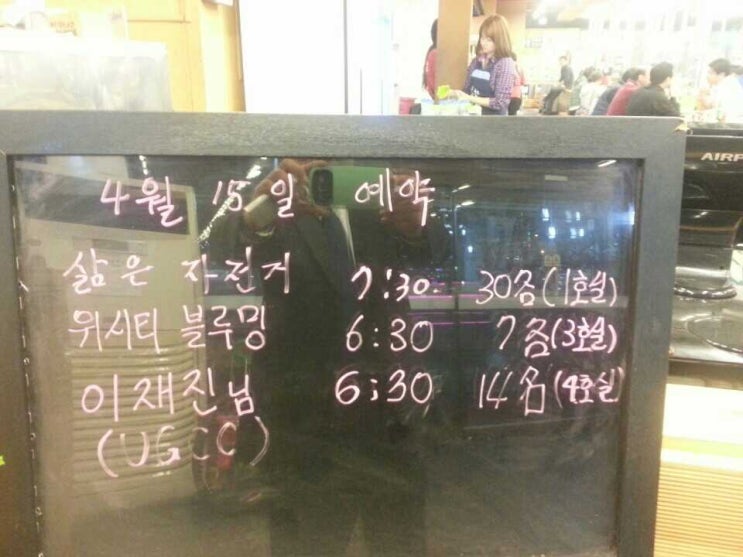 4월 15일 예약
삶은 자전거 7:30 30名(1호실)
위시티 블루밍 6:30 7名(3호실)
이재진님 6:30 14名(4호실)
(UGCC)